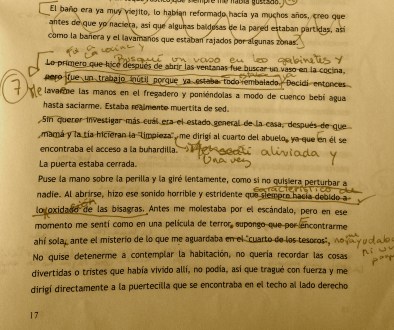 El baño era ya muy viejito, lo habían reformado hacía ya muchos años, creo que
antes de que yo naciera, así que algunas baldosas de la pared estaban partidas, así
como la bañera y el lavamanos que estaban rajados por algunas zonas.
Busqué un vaso en los gabinetes y
Lo primero que hice después de abrir las ventanas fue buscar un vaso en la cocina,
pero fue un trabajo inútil porque ya estaba todo embalado. Decidí entonces
7
lavarme las manos en el fregadero y poniéndolas a modo de cuenco bebí agua
hasta saciarme. Estaba realmente muertita de sed.
Sin querer investigar más cuál era el estado general de la casa, después de que
mamá y la tía hicieran la "limpieza", me dirigí al cuarto del abuelo, ya que en él se
encontraba el acceso a la buhardilla.
aliviada y
Una vez
La puerta estaba cerrada.
Puse la mano sobre la perilla y la giré lentamente, como si no quisiera perturbar a
característico de
nadie. Al abrirse, hizo ese sonido horrible y estridente que siempre hacía debido a
lo oxidado de las bisagras. Antes me molestaba por el escándalo, pero en ese
momento me sentí como en una película de terror, supongo que por encontrarme
ahí sola, ante el misterio de lo que me aguardaba en el "cuarto de los tesoros",
No quise detenerme a contemplar la habitación, no quería recordar las cosas
divertidas o tristes que había vivido allí, no podía, así que tragué con fuerza y me
dirigí directamente a la puertecilla que se encontraba en el techo al lado derecho
17